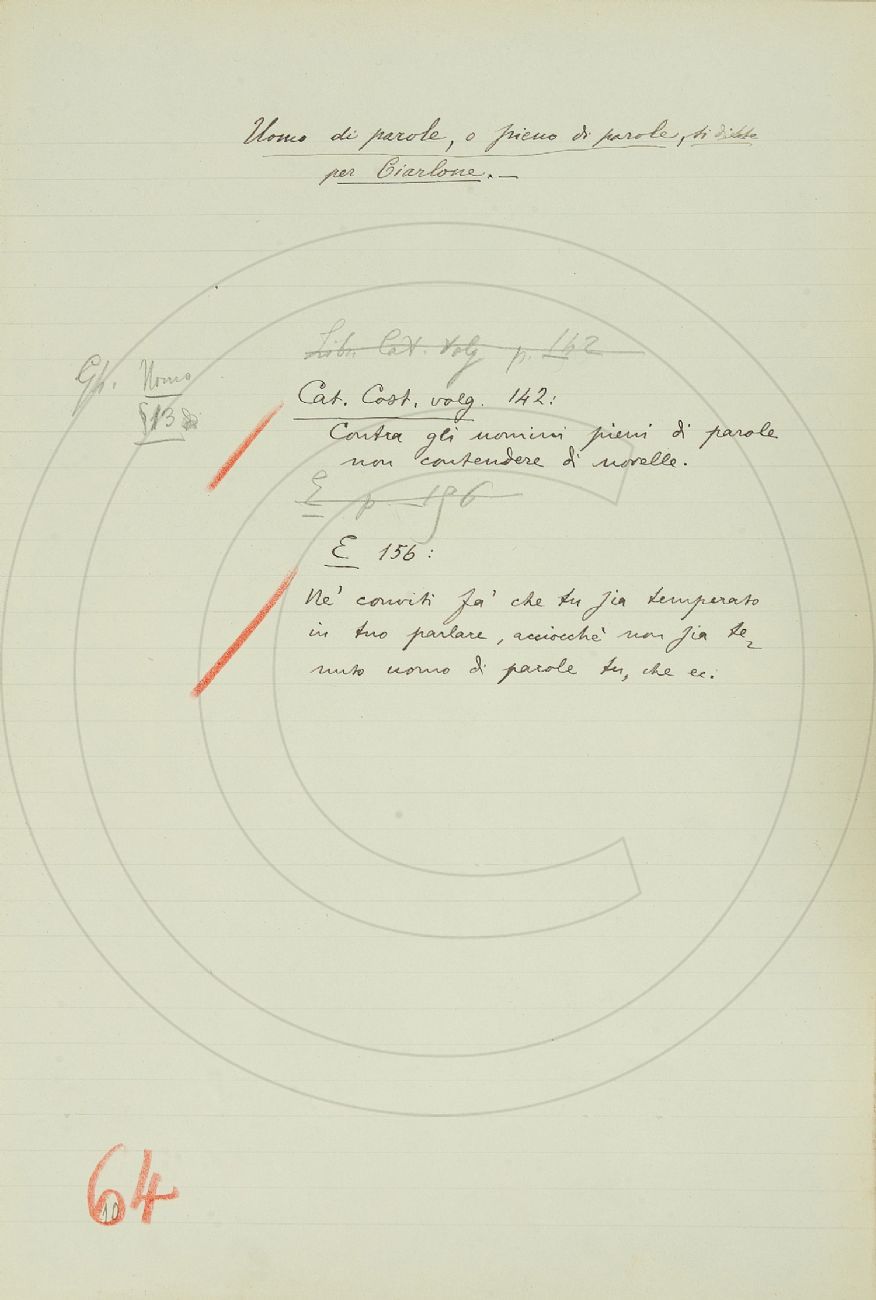 Uomo di parole, o pieno di parole, si disse
per Ciarlone. —
Libr. Cat. volg p. 142
Gh. Uomo
§13
Cat. Cost. volg. 142:
Contra gli uomini pieni di parole
non contendere di novelle.
E p. 156
E 156:
Ne' conviti fa' che tu sia temperato
in tuo parlare, acciocchè non sia te-
nuto uomo di parole tu, che ec.
64
10